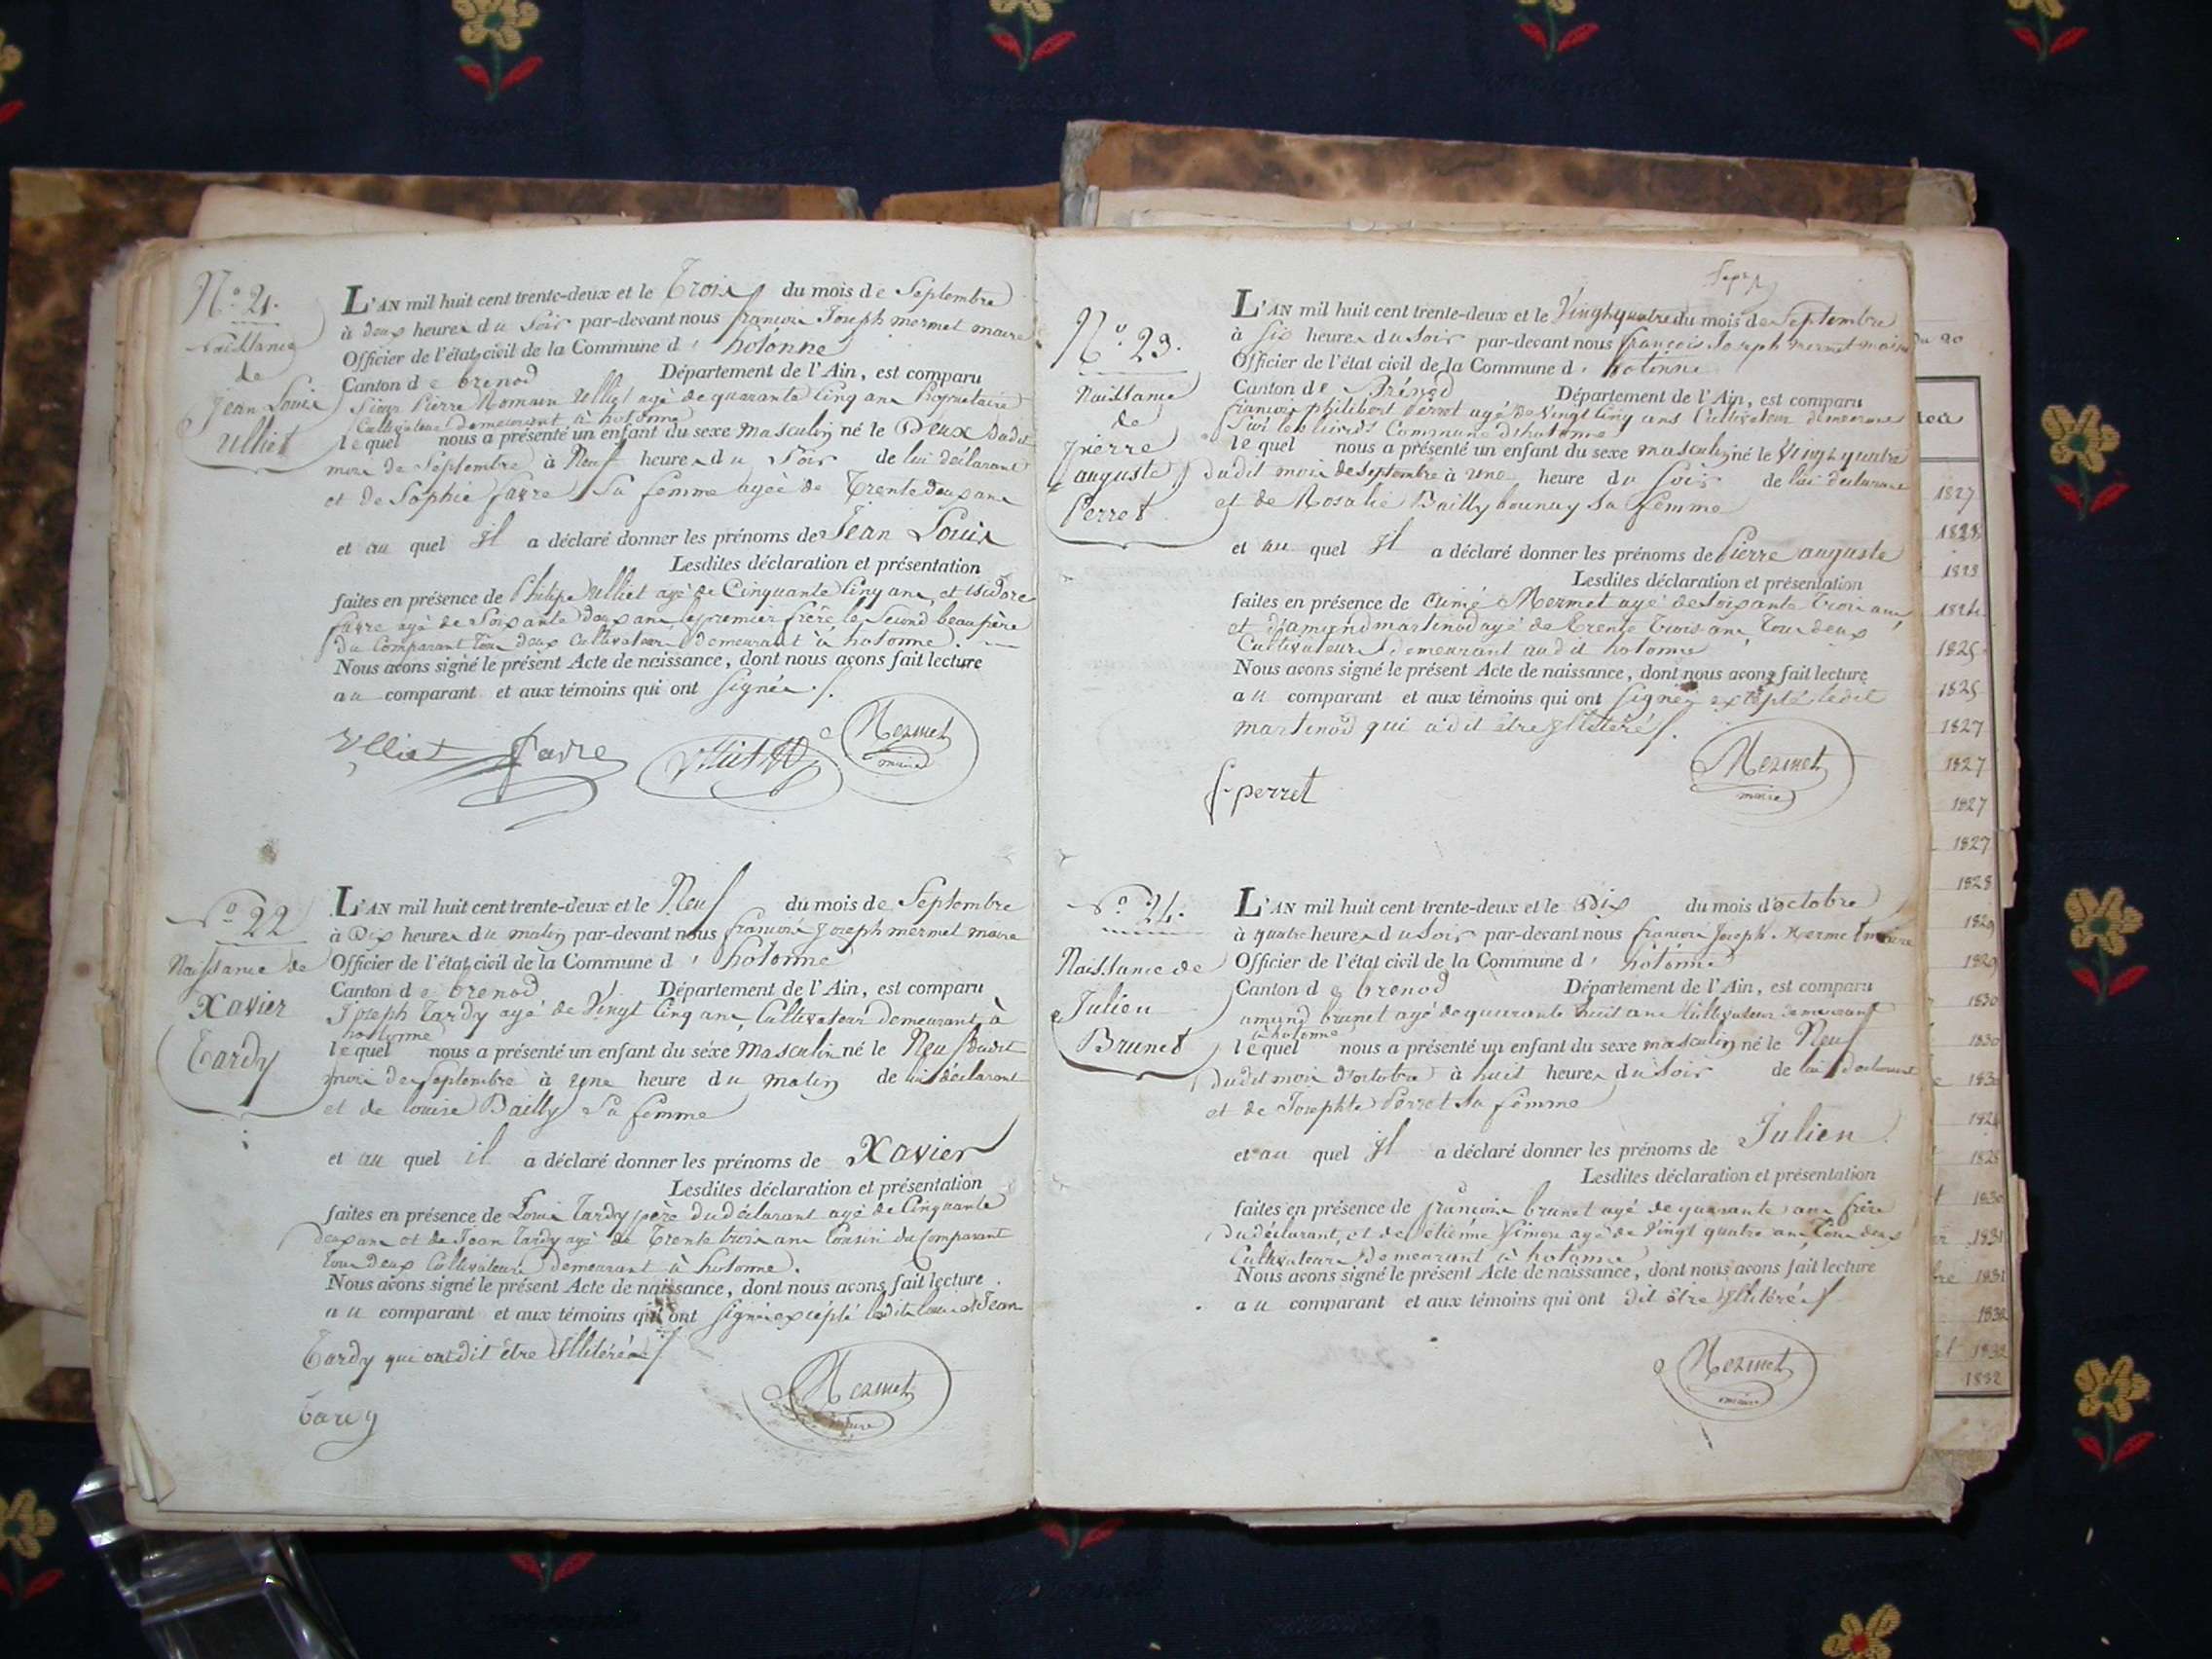 N.º 21.
Naissance
de
Jean Louis
ulliet
L'AN mil huit cent trente-deux et le Trois du mois de Septembre
à deux heures du Soir par-devant nous françois Joseph mermet maire
Officier de l'état civil de la Commune d' hotonne
Canton de brenod Département de l'Ain, est comparu
Sieur Pierre Romain Ulliet agé de quarante Cinq ans Propriétaire
Cultivateur demeurant à hotonne
lequel nous a présenté un enfant du sexe masculin né le Deux dudit
mois de Septembre à Neuf heures du Soir de lui déclarant
et de Sophie favre Sa femme agée de Trente deux ans
et au quel Il a déclaré donner les prénoms de Jean Louis
Lesdites déclaration et présentation
faites en présence de Philipe Ulliet agé de Cinquante Cinq ans, et isidore
favre agé de Soixante deux ans le premier frère le Second beaupère
du Comparant Tous deux Cultivateurs demeurant à hotonne.
Nous avons signé le présent Acte de naissance, dont nous avons fait lecture
au comparant et aux témoins qui ont signés./.
Ulliet favre Mermet
maire
N.º 22
Naissance de
Xavier
Tardy
L'AN mil huit cent trente-deux et le Neuf du mois de Septembre
à Dix heures du matin par-devant nous françois Joseph mermet maire
Officier de l'état civil de la Commune d' hotonne
Canton de brenod Département de l'Ain, est comparu
Joseph Tardy agé de Vingt Cinq ans, Cultivateur demeurant à
hotonne
lequel nous a présenté un enfant du séxe Masculin né le Neuf dudit
mois de Septembre à Une heure du matin de lui déclarant
et de louise Bailly Sa femme
et au quel il a déclaré donner les prénoms de Xavier
Lesdites déclaration et présentation
faites en présence de Louis Tardy père du déclarant agé de Cinquante
deux ans et de Jean Tardy agé de Trente trois ans Cousin du Comparant
tous deux Cultivateurs demeurant à hotonne.
Nous avons signé le présent Acte de naissance, dont nous avons fait lecture
au comparant et aux témoins qui ont signé excépté lesdits louis et Jean
Tardy qui ont dit être Illitérés./.
Mermet
maire
Tardy
N.º 23.
Naissance
de
pierre
auguste
Perret
L'AN mil huit cent trente-deux et le Vingt quatre du mois de Septembre
à Six heures du Soir par-devant nous françois Joseph mermet maire
Officier de l'état civil de la Commune d' hotonne
Canton de Brénod Département de l'Ain, est comparu
françois philibert Perret agé de Vingt Cinq ans Cultivateur demeurant
Sur les Commune d'hotonne
lequel nous a présenté un enfant du sexe masculin né le Vingt quatre
dudit mois de Septembre à une heure du Soir de lui déclarant
et de Rosalie Bailly bounay Sa femme
et au quel Il a déclaré donner les prénoms de Pierre auguste
Lesdites déclaration et présentation
faites en présence de aimé Mermet agé de Soixante Trois ans,
et d'amand martinod agé de Trente Trois ans Tous deux
Cultivateurs demeurant audit hotonne
Nous avons signé le présent Acte de naissance, dont nous avons fait lecture
au comparant et aux témoins qui ont signés excépté ledit
martinod qui a dit être Illitéré./.
Mermet
maire
f. perret
N.º 24.
Naissance de
Julien
Brunet
L'AN mil huit cent trente-deux et le Dix du mois d'octobre
à quatre heures du Soir par-devant nous françois Joseph Mermet maire
Officier de l'état civil de la Commune d' hotonne
Canton de brenod Département de l'Ain, est comparu
amand brunet agé de quarante huit ans Cultivateur demeurant
à hotonne
lequel nous a présenté un enfant du sexe masculin né le Neuf
dudit mois d'octobre à huit heures du Soir de lui déclarant
et de Josephte Perret Sa femme
et au quel Il a déclaré donner les prénoms de Julien
Lesdites déclaration et présentation
faites en présence de françois brunet agé de quarante ans frère
du déclarant, et de etienne Simon agé de Vingt quatre ans Tous deux
Cultivateurs demeurant à hotonne
Nous avons signé le présent Acte de naissance, dont nous avons fait lecture
au comparant et aux témoins qui ont dit être Illitérés./
Mermet
maire
1827
1828
1827
1827
1827
1827
1828
1829
1829
1830
1830
1830
1830
1831
1831
1832
1832
1832